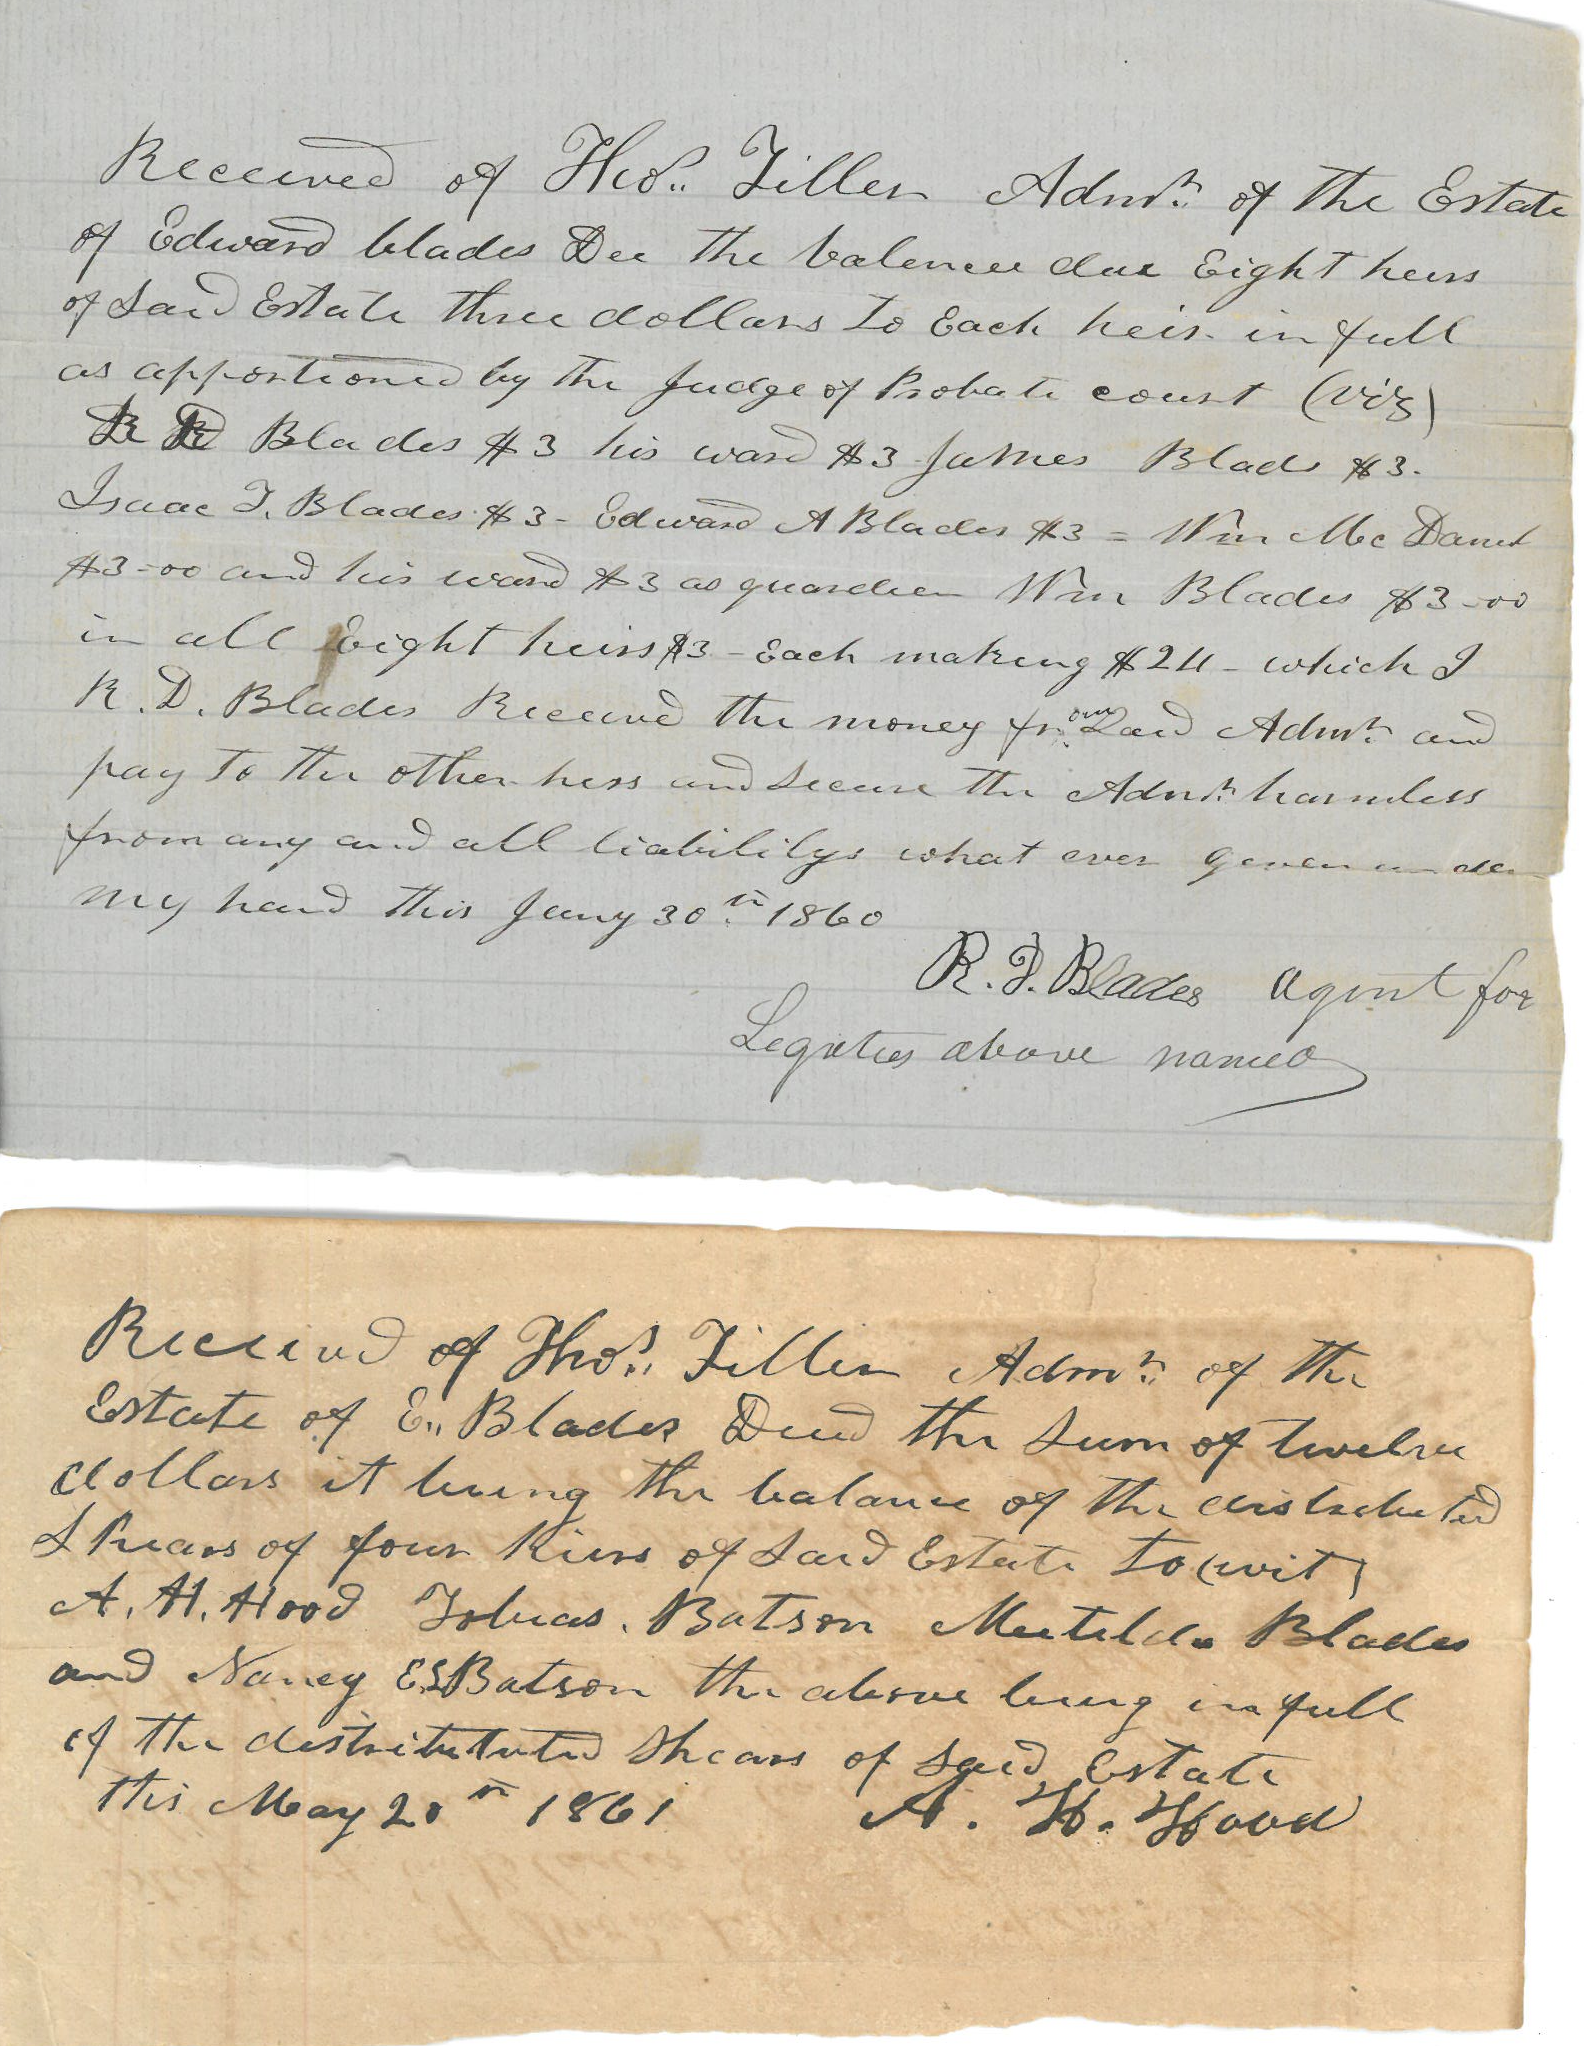 Received of Thos. Tiller Admr. of the Estate
of Edward blades Dec the balence due Eight heirs
of Said Estate three dollars to Each heir in full
as apportioned by the Judge of Probate court (viz)
R D Blades $3 his ward $3 James Blads $3.
Isaac T. Blades $3 - Edward A Blades $3 = Wm Mc Daniel
$3-00 and his ward $3 as guardien Wm Blades $3-00
in all Eight heirs $3 - Each making $24 - which I
R. D. Blades Received the money from Said Admr. and
pay to the other heirs and secure the Admr. harmless
from any and all liabilitys what ever given under
my hand this Jany 30th 1860
R. D. Blades agent for
Legates above named
Received of Thos. Tiller Admr. of the
Estate of E. Blades Decd the Sum of twelve
dollars it being the balance of the distributed
Shears of four heirs of Said Estate to (wit)
A. H. Hood Tobias. Batson Matilda Blades
and Nancy E Batson the above being in full
of the distributed Shears of Said Estate
this May 20th 1861 A. H. Hood